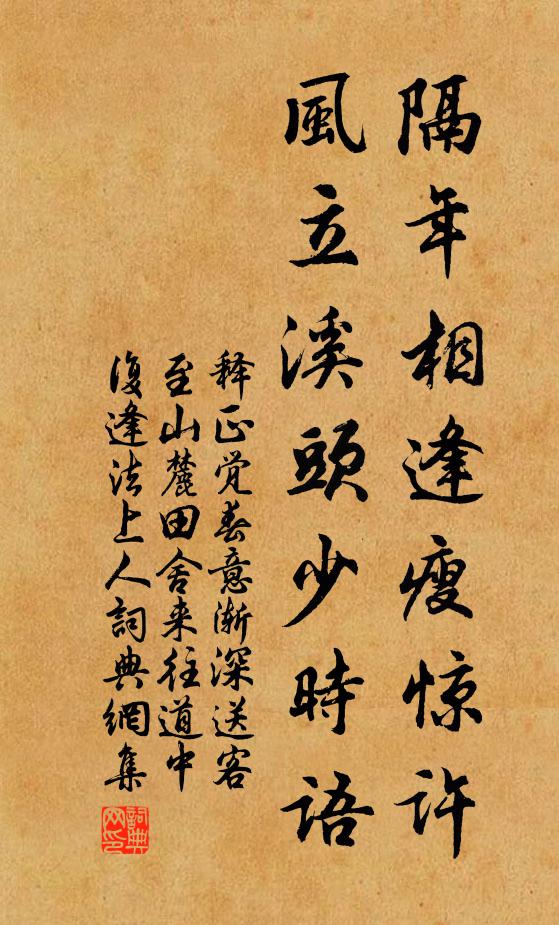 隔年相逢瘦惊许
風立溪頭少時語
释正觉春意渐深送客
至山麓田舍来往道中
復逢法上人詞典網集
詞典网印